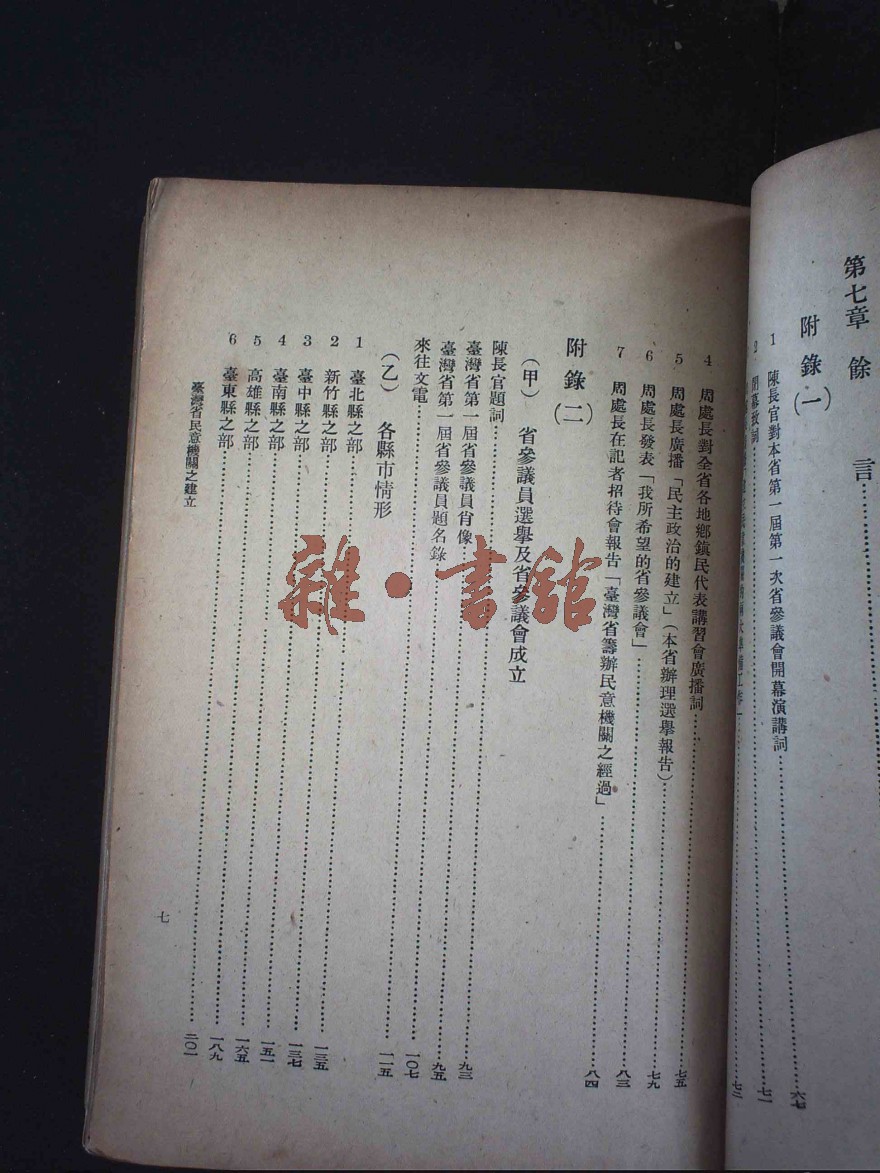 第七章　餘　言
附錄（一）
1　陳長官對本省第一屆第一次省參議會開幕演講詞……六七
2　閉幕致詞……七一
……七二
4　周處長對全省各地鄉鎮民代表講習會廣播詞……七五
5　周處長廣播「民主政治的建立」（本省辦理選舉報告）……七九
6　周處長發表「我所希望的省參議會」……八三
7　周處長在記者招待會報告「臺灣省籌辦民意機關之經過」……八四
附錄（二）
（甲）　省參議員選舉及省參議會成立
陳長官題詞……九三
臺灣省第一屆省參議員肖像……九五
臺灣省第一屆省參議員題名錄……一〇七
來往文電……一一五
（乙）　各縣市情形
1　臺北縣之部……一三五
2　新竹縣之部……一三七
3　臺中縣之部……一五一
4　臺南縣之部……一六五
5　高雄縣之部……一八九
6　臺東縣之部……二〇一
臺灣省民意機關之建立
七
雜·書舘